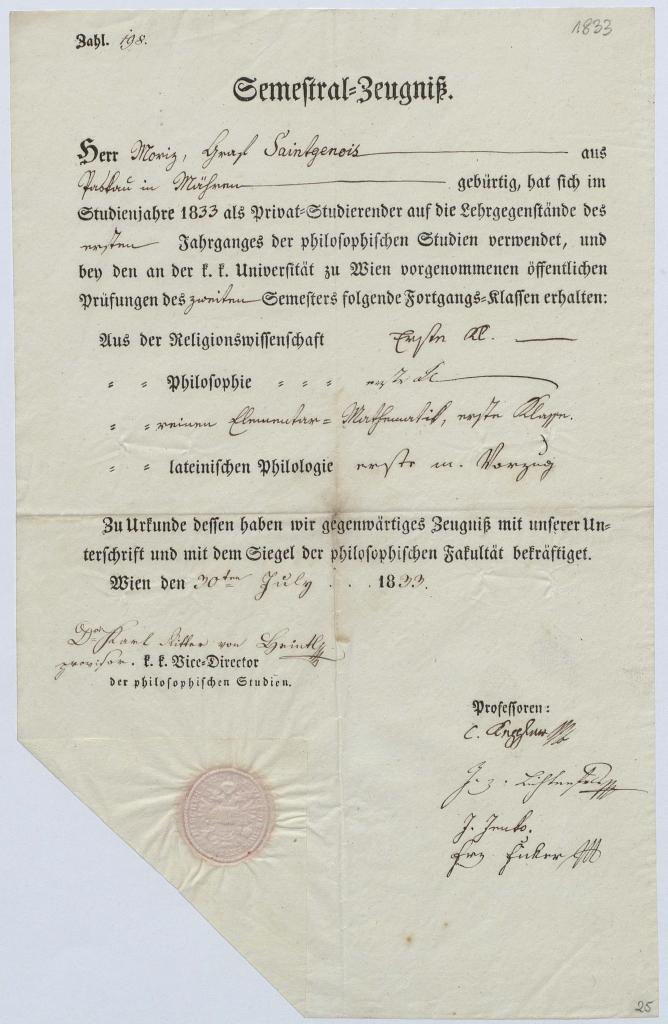 1833
Zahl. 198.
Semeſtral-Zeugniß.
Herr Moriz, Graf Saintgenois aus
Paskau in Mähren gebürtig, hat ſich im
Studienjahre 1833 als Privat-Studierender auf die Lehrgegenſtände des
erſten Jahrganges der philoſophiſchen Studien verwendet, und
bey den an der k. k. Univerſität zu Wien vorgenommenen öffentlichen
Prüfungen des zweiten Semeſters folgende Fortgangs-Klaſſen erhalten:
Aus der Religionswiſſenſchaft Erſte Kl.
" " Philoſophie " " " erſte Kl
" " reinen Elementar- Mathematik, erſte Klaſſe.
" " lateiniſchen Philologie erſte m. Vorzug
Zu Urkunde deſſen haben wir gegenwärtiges Zeugniß mit unſerer Un-
terſchrift und mit dem Siegel der philoſophiſchen Fakultät bekräftiget.
Wien den 30ten July . . 1833.
Dor Karl Ritter von Heintl
proviſor. k. k. Vice-Director
der philoſophiſchen Studien.
Profeſſoren:
C.
Lichtenfels
J. Jenko.
Ficker
25